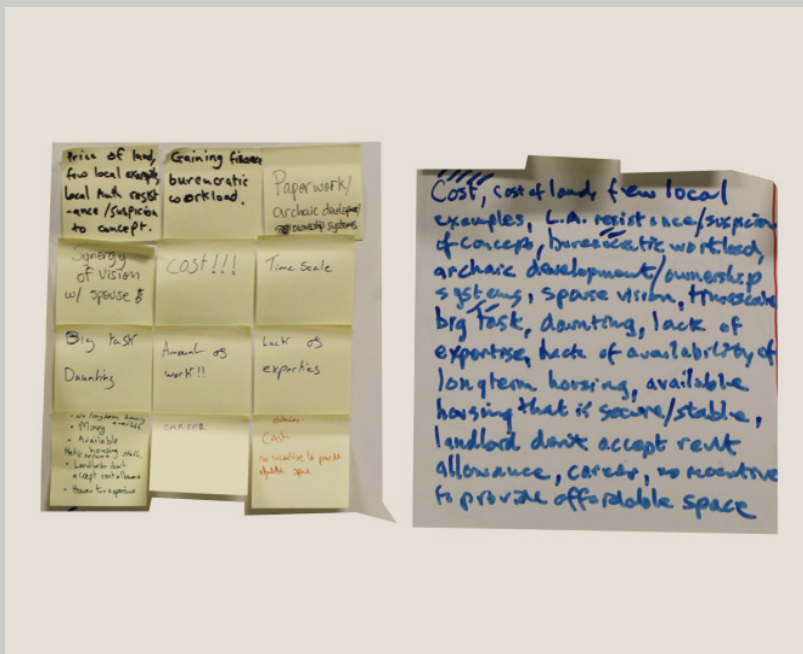 Price of land,
few local example,
Local Auth resist
-ance/suspicion
to concept.
Gaining finance
bureucratic
workload.
Paperwork/
archaic
ownership systems
Synergy
of vision
w/ spouse
COST!!!
Time Scale
Big task
Daunting
Amount of
work!!
Lack of
experties
• Money
• Available
housing
• Landlords don't
accept rent allowance
CAREER
Cash
no incentive to provide
space
Cost, cost of land, few local
examples, L.A. resistance/suspicion
of concept, bureucratic workload,
archaic development/ownership
systems, spouse vision, timescale
big task, daunting, lack of
expertise, lack of availability of
longterm housing, available
housing that is secure/stable,
landlord don't accept rent
allowance, career, no incentive
to provide affordable space